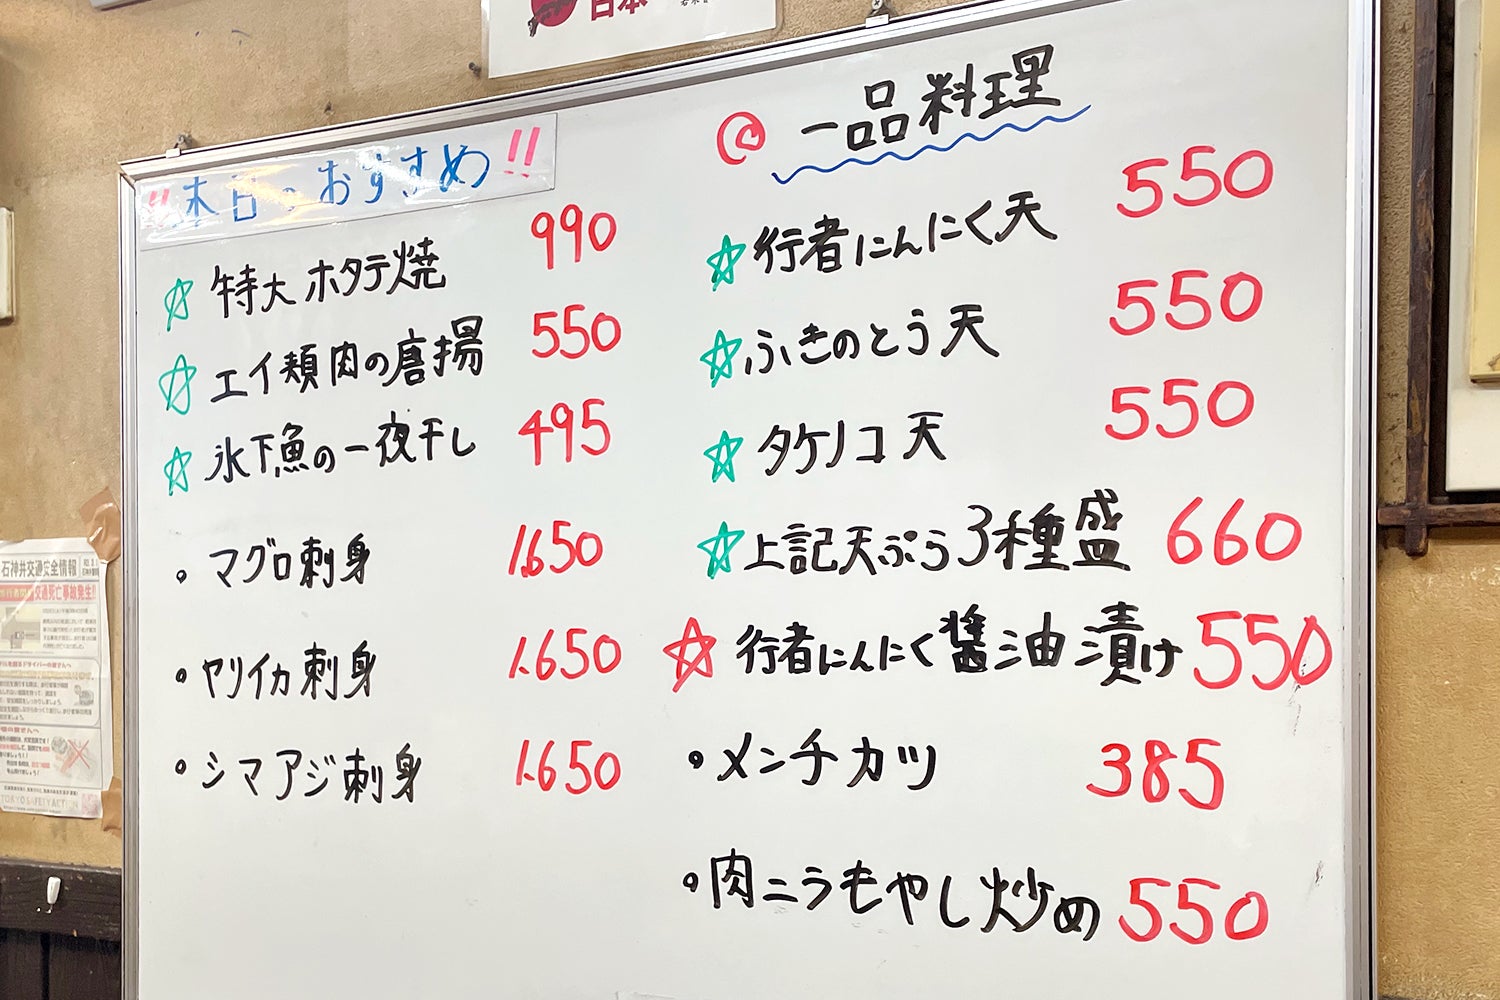 日本
!!本日のおすすめ!!
☆特大ホタテ焼 990
☆エイ頬肉の唐揚 550
☆氷下魚の一夜干し 495
・マグロ刺身 1.650
・ヤリイカ刺身 1.650
・シマアジ刺身 1.650
一品料理
☆行者にんにく天 550
☆ふきのとう天 550
☆タケノコ天 550
☆上記天ぷら3種盛 660
☆行者にんにく醤油漬け 550
・メンチカツ 385
・肉ニラもやし炒め 550
石神井交通安全情報
交通死亡事故発生!!
TOKYO SAFETY ACTION